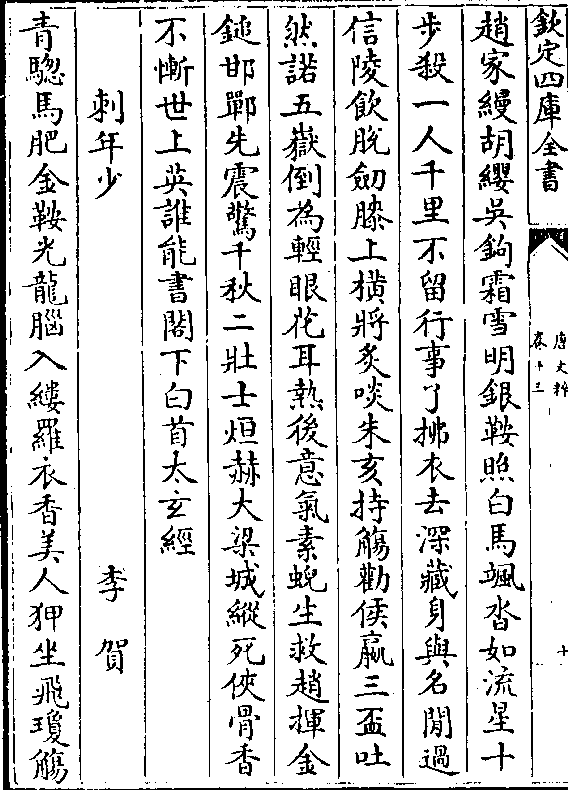 欽定四庫全書
唐文粹
卷十三
十
趙家縵胡纓吳鉤霜雪明銀鞍照白馬颯沓如流星十
步殺一人千里不留行事了拂衣去深藏身與名閒過
信陵飲脫劒膝上橫將炙啖朱亥持觴勸侯嬴三盃吐
然諾五嶽倒為輕眼花耳熱後意氣素蜺生救趙揮金
鎚邯鄲先震驚千秋二壯士烜赫大梁城縱死俠骨香
不慚世上英誰能書閣下白首太玄經
刺年少 李賀
青驄馬肥金鞍光龍腦入縷羅衣香美人狎坐飛瓊觴